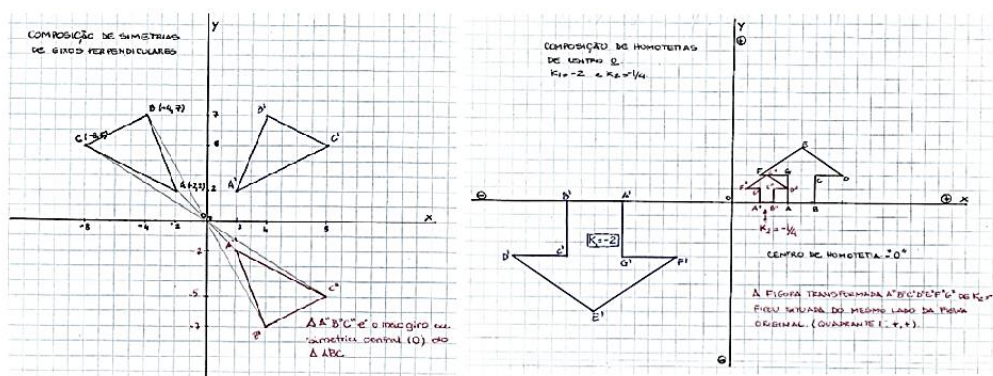 COMPOSIÇÃO DE SIMETRIAS
DE EIXOS PERPENDICULARES
y
B (-4,7)
B'
7
C (-8,5)
C'
5
A (-2,2)
A'
2
0
x
-8
-4
-2
2
4
8
A"
-2
C"
-5
B"
-7
Δ A"B"C" é o meio giro ou
simetria central (O) do
Δ ABC
y
⊕
COMPOSIÇÃO DE HOMOTETIAS
DE CENTRO O
K1=-2 e K2=-1/4
E
F
G
C
D
F"
G"
C"
D"
⊖
B'
A'
0
A"
B"
A
B
⊕
x
K2=-1/4
K=-2
D'
C'
G'
F'
CENTRO DE HOMOTETIA = "O"
E'
A FIGURA TRANSFORMADA A"B"C"D"E"F"G" DE K2
FICOU SITUADA DO MESMO LADO DA FIGURA
ORIGINAL. (QUADRANTE I: +,+).
⊖